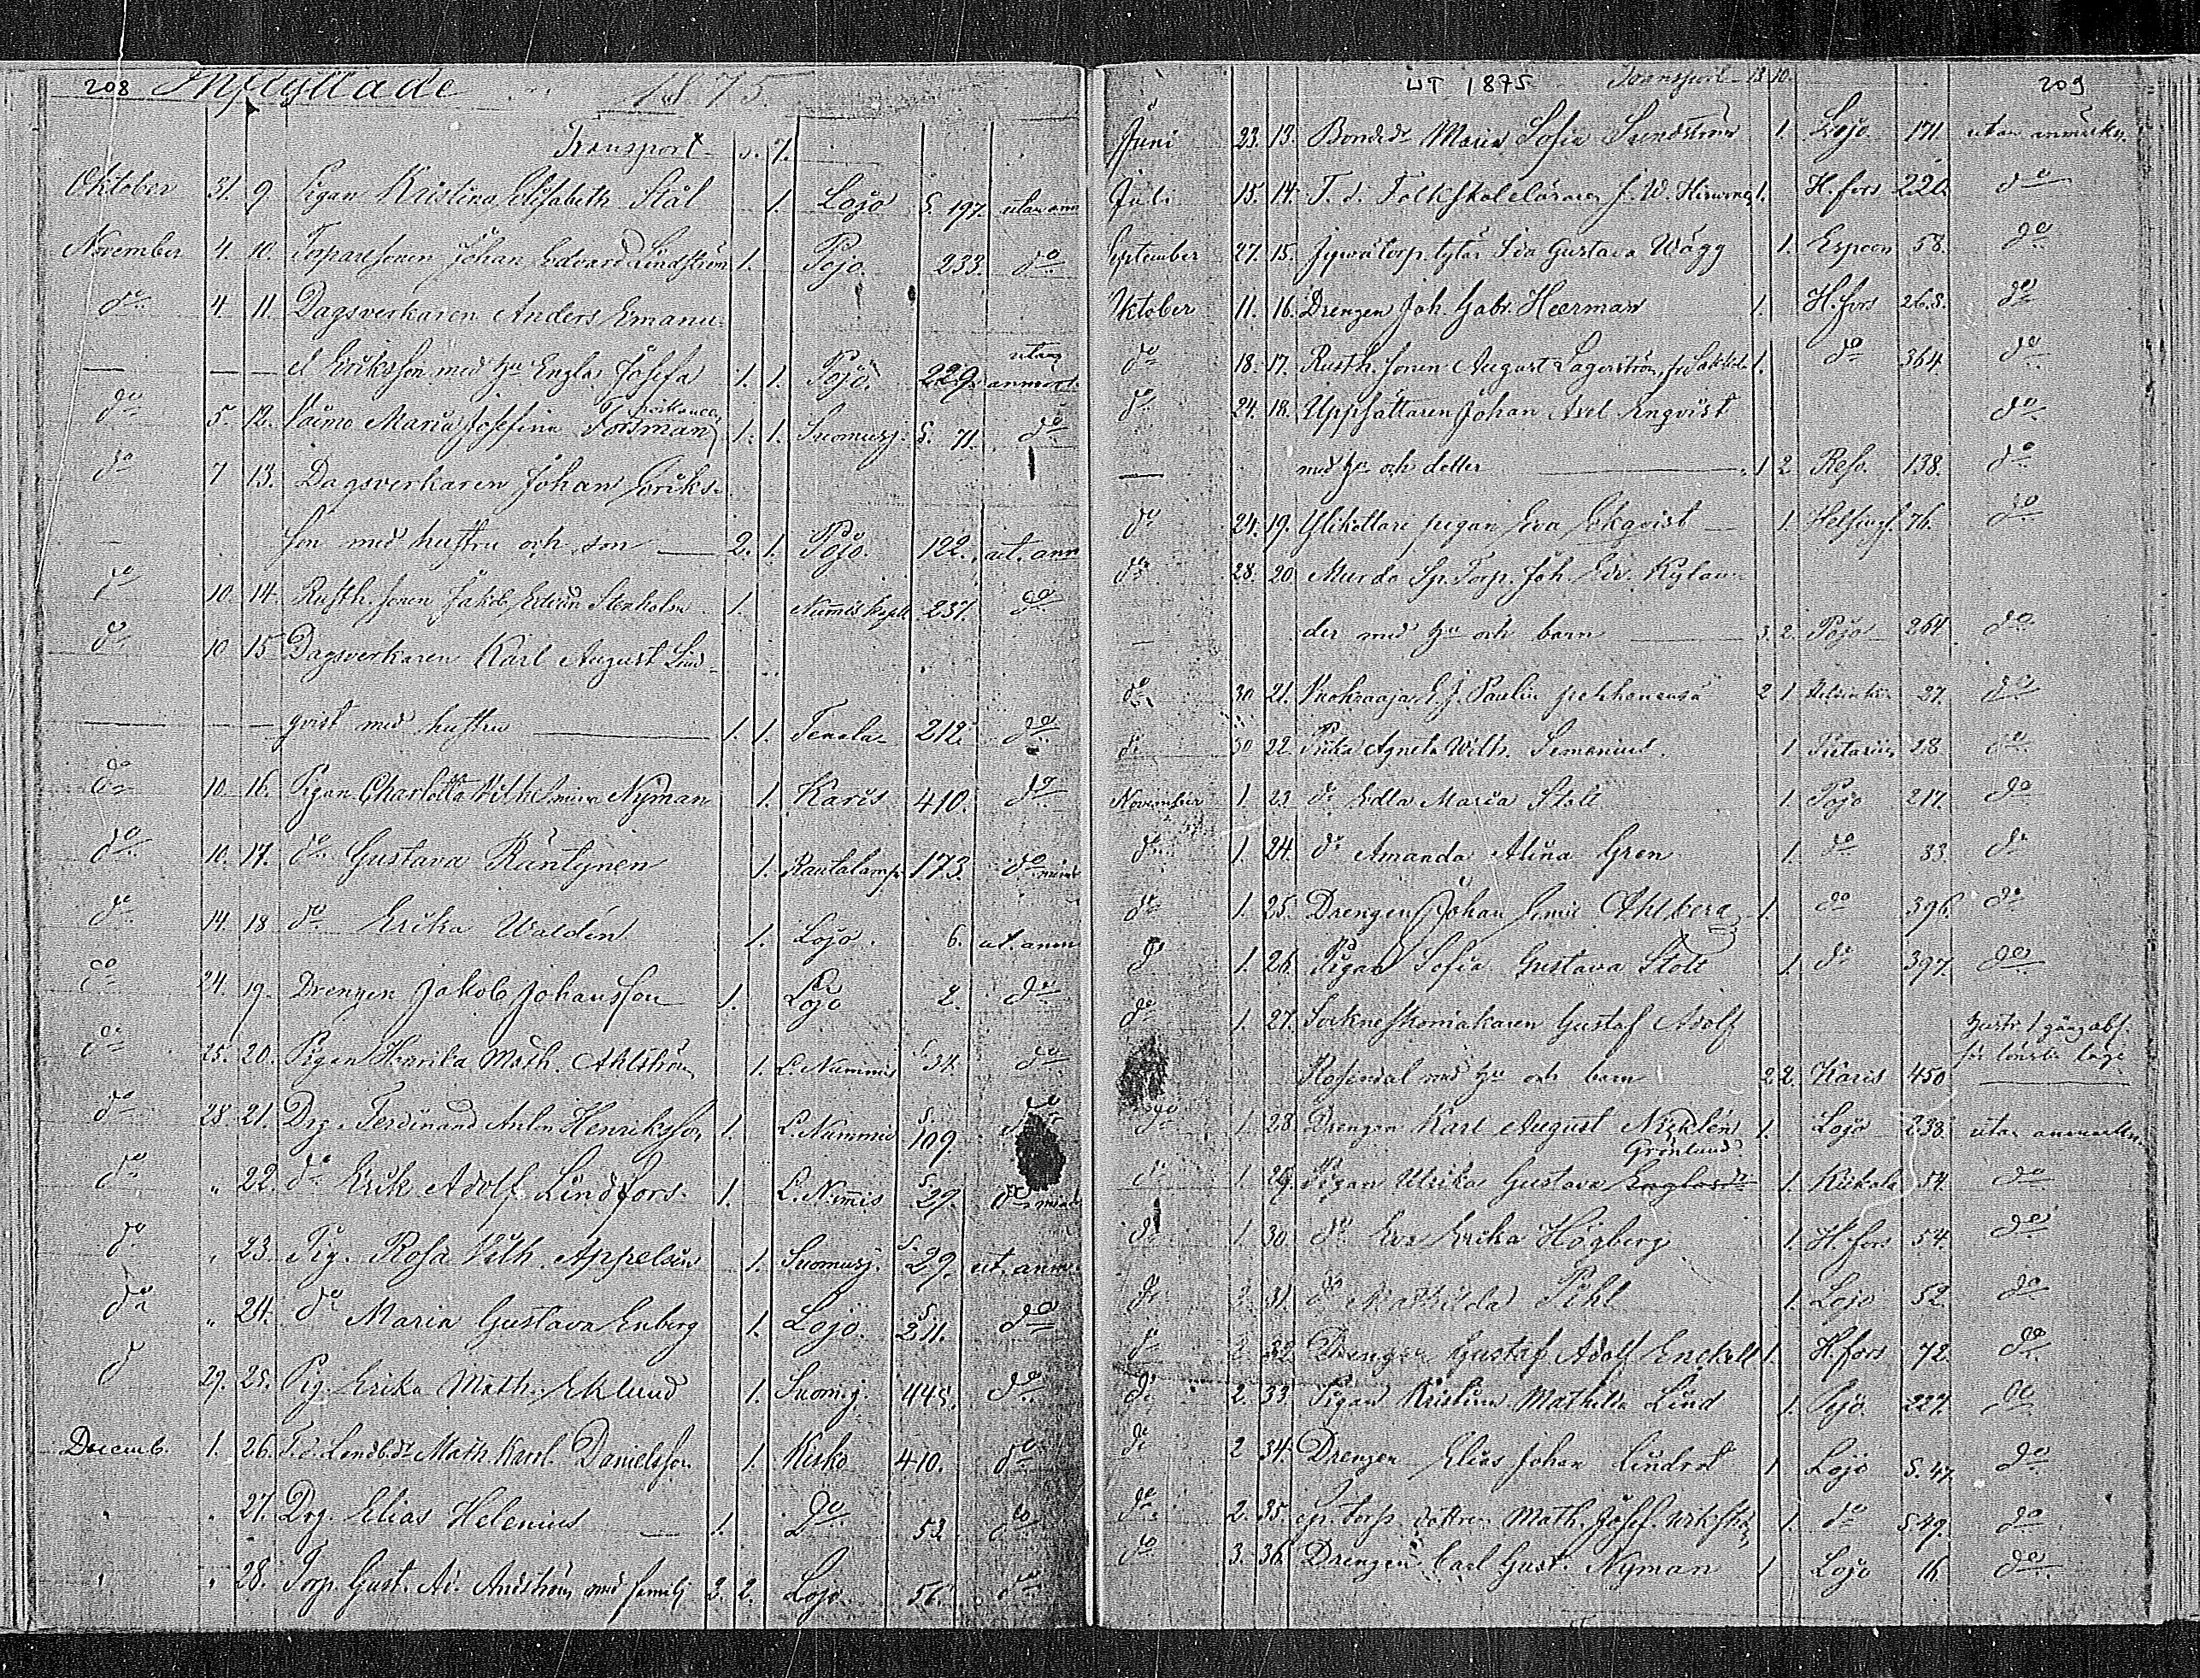 208 Inflyttade 1875
Transport 7.
Oktober 31. 9. Pigan Kristina Elisabeth Stål 1. Lojo S. 197. utan anm
November 4. 10. Torparesonen Johan Edvard Lindström 1. Pojo. 233. do
do 4. 11. Dagsverkaren Anders Emanu-
el Eriksson med hu Engla Josefa 1. 1. Pojo. 229. utan anmärk.
do 5. 12. Maria Josefina Forsman 1. 1. Suomusj. S. 71. do
do 7 13. Dagsverkaren Johan Eriks-
son med hustru och son 2. 1. Pojo 122. ut. anm
do 10. 14. Rusth. sonen Jakob Edvard Stenholm 1. Nummis kapell 237. do
do 10 15 Dagsverkaren Karl August Lind-
qvist med hustru 1. 1. Tenala 212. do
do 10. 16. Pigan Charlotta Wilhelmina Nyman 1. Karis 410. do
do 10. 17. do Gustava Räntynen 1. Rautalamp. 173. do
do 14. 18 do Erika Waldén 1. Lojo. 6. ut. anm
do 24. 19. Drengen Jakob Johansson 1. Lojo 2. do
do 25. 20. Pigan Henrika Math. Ahlström 1. L. Nummis S. 34. do
do 28. 21. Drg. Ferdinand Anton Henriksson 1. L. Nummis S. 109 do
do " 22. do Erik Adolf Lindfors. 1. L. Nummis S. 29. do
do " 23. Pig. Rosa Vilh. Appelin 1. Suomusj. S. 29. ut. anm.
do " 24. do Maria Gustava Enberg 1. Lojo. S. 211. do
do 29. 25. Pig. Erika Math. Eklund 1. Suomj. 445. do
Decemb. 1. 26. Math. Karol. Danielsson 1. Kisko 410. do
" " 27. Drg. Elias Helenius 1. do 53. do
" " 28. Torp. Gust. Ad. Andström med familj 2. 2. Lojo. 56. do
UT 1875 Transport 13 10. 209
Juni 23. 13. Bonded. Maria Sofia Sundström 1. Lojo 171 utan anmärkn.
Juli 15. 14. T. d. Folkskoleläraren J. W. 1. H.fors 220. do
September 27. 15. tytär Ida Gustava Wägg 1. Espoon 58. do
Oktober 11. 16. Drengen Joh. Gabr. Heerman 1. H.fors 268. do
do 18. 17. Rusth. sonen August Lagerström, 1. do 364. do
do 24. 18. Uppsättaren Johan Axel Enqvist do
med hu och dotter 1 2 Reso. 138. do
do 24. 19. pigan Eva Ekqvist 1. Helsingf. 76. do
do 28. 20. Sp. Torp. Joh. Edv. Kylan-
der med hu och barn 3. 2. Pojo 264 do
do 30 21. E. J. Paulin perheneensä 2 1 27. do
do 30 22. Piika Agneta Wilh. Simenius. 1 Pietarin 28 do
November 1. 23. do Edla Maria Stoll 1. Pojo 217. do
do 1. 24. do Amanda Alina Gren 1. do 33. do
do 1. 25. Drengen Johan Emil Ahlberg 1. do 396. do
do 1. 26. Pigan Sofia Gustava Stoll 1. do 397. do
do 1. 27. Sockneskomakaren Gustaf Adolf
Rosendal med hu och barn 2 2. Karis 450
do 1. 28. Drengen Karl August Nyklén 1. Lojo 238. utan anmärkn.
Grönlund
do 1. 29. Pigan Ulrika Gustava Englund 1. Kiikala 54. do
do 1. 30. do Eva Erika Högberg 1. H.fors 54. do
do 2. 31. do Mathilda Pihl 1. Lojo 52. do
do 2. 32. Drengen Gustaf Adolf Enckell 1. H.fors 72. do
do 2. 33. Pigan Kristina Mathilda Lind 1. Pojo. 227. do
do 2 34. Drengen Elias Johan Lindrot 1 Lojo S. 47. do
do 2. 35. Sp. torp. dottren Math. Josef. Wikström 1. do S. 49. do
do 3. 36. Drengen Carl Gust. Nyman 1 Lojo 16. do